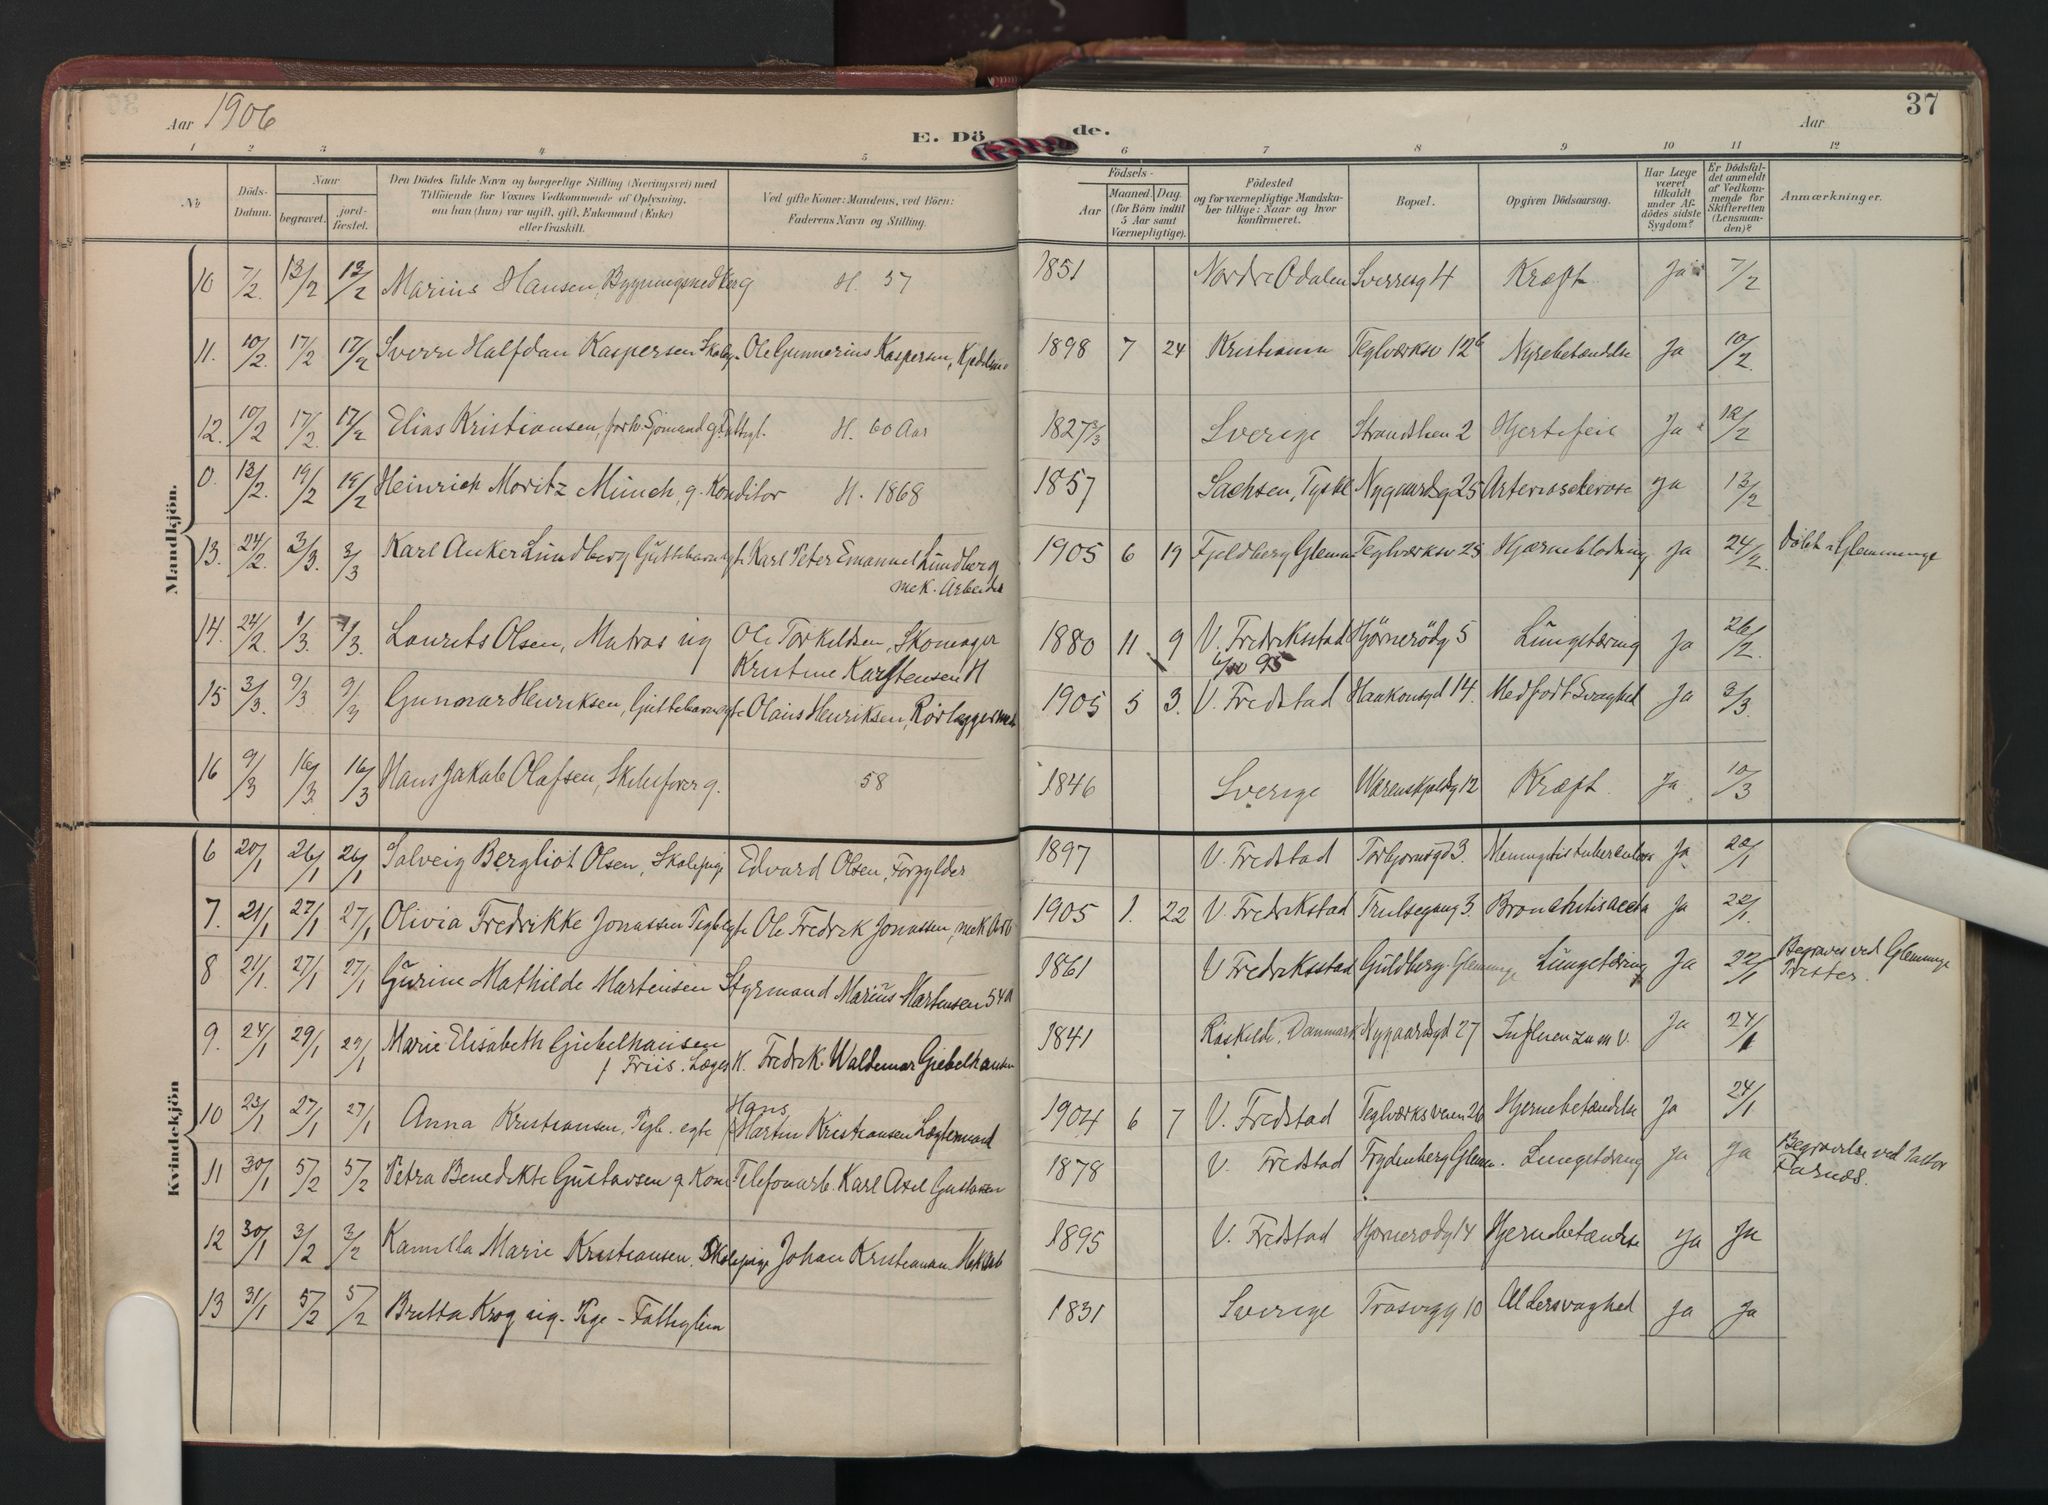 Aar 1906
E. Dö
de.
Aar
37
1 2 3 4 5 6 7 8 9 10 11 12
No
Döds-Datum.
Naar
begravet.
jordfæstet.
Den Dödes fulde Navn og borgerlige Stilling (Næringsvei) med
Tilföiende for Voxnes Vedkommende af Oplysning,
om han (hun) var ugift, gift, Enkemand (Enke)
eller fraskilt.
Ved gifte Koner: Mandens, ved Börn:
Faderens Navn og Stilling.
Födsels-
Aar
Maaned. Dag.
(for Börn indtil
5 Aar samt
Værnepligtige).
Födested
og for værnepligtige Mandskaber tillige: Naar og hvor
konfirmeret.
Bopæl.
Opgiven Dödsaarsag.
Har Læge
været
tilkaldt
under Afdödes sidste
Sygdom?
Er Dödsfaldet anmeldt
af Vedkommende for
Skifteretten
(Lensmanden)?
Anmærkninger.
Mandkjön.
10 7/2. 13/2 13/2 Marius Hansen, Bygningssnedker g H. 57 1851 Nordre Odalen Sverresg 4 Kræft Ja 7/2
11. 10/2. 17/2 17/2 Sverre Halfdan Kaspersen Skoleg. Ole Gunnerius Kaspersen, 1898 7 24 Kristiania Teglværksv 12b Nyrebetændelse Ja 10/2.
12. 10/2 17/2. 17/2 Elias Kristiansen, forh. Sjømand g. Fattigl. H. 60 Aar 1827 3/3 Sverige Strandlien 2 Hjertefeil Ja 12/2
0. 13/2. 19/2 19/2 Heinrich Moritz Münch, g. Konditor H. 1868 1857 Sachsen, Tyskl Nygaardsg 25 Arteriosclerose Ja 13/2
13. 24/2. 3/3. 3/3 Karl Anker Lundberg Guttebarn egte Karl Peter Emanuel Lundberg 1905 6 19 Fjeldberg Glemm Teglværksv 25 Hjerneblodning Ja 24/2. Döbt i Glemminge
mek. Arbeider
14. 24/2. 1/3. 1/3. Laurits Olsen, Matros ug Ole Torkildsen, Skomager 1880 11 9 V. Fredriksstad Hjørnerødg 5 Lungetæring Ja 26/2.
Kristine Karstensen H 6/10 95
15 3/3. 9/3 9/3 Gunnar Henriksen, Guttebarn egte Olaus Henriksen, Rørlægger 1905 5 3. V. Fredstad Haakonsgd 14. Medfødt Svaghed Ja 3/3.
16 9/3 16/3. 16/3 Hans Jakob Olafsen, g. 58 1846 Sverige Wærenskjoldsg 12 Kræft. Ja 10/3
Kvindekjön
6 20/1 26/1 26/1 Solveig Bergliot Olsen, Skolepige Edvard Olsen, Forgylder 1897 V. Fredstad Torbjørnsgd 3. Meningitis tuberculosa Ja 20/1
7. 21/1 27/1 27/1 Olivia Fredrikke Jonassen Pigeb egte Ole Fredrik Jonassen, mek Arb 1905 1. 22 V. Fredrikstad Trulsegang 3. Bronchitis acuta Ja 22/1.
8 21/1. 27/1 27/1 Gurine Mathilde Martinsen Styrmand Marius Martinsen 54 1861 V Fredriksstad Guldberg. Glemminge Lungetæring Ja 22/1 Begraves ved Glemminge
Prester.
9. 24/1 29/1 29/1 Marie Elisabeth Giebelhausen 1841 Roskilde. Danmark Nygaardsgd 27 Influenza m v. Ja 24/1
f Friis. Læges K. Fredrik Waldemar Giebelhausen
10 23/1 27/1 27/1 Anna Kristiansen, Pigb. egte Hans
Martin Kristiansen Lægtermand 1904 6 7 V. Fredstad Teglværksveien 26 Hjernebetændelse Ja 24/1
11 30/1 5/2 5/2 Petra Benedikte Gustavsen g Kone Telefonarb. Karl Axel Gustavsen 1878 V. Fredstad Frydenberg Glemm. Lungetæring Ja Ja Begravelse ved Pastor
12 30/1 3/2 3/2 Kamilla Marie Kristiansen. Skolepige Johan Kristiansen. Mek Arb 1895 V. Fredstad Hjørnerødg 14 Hjernebetændelse Ja Ja
13 31/1 5/2 5/2 Britta Krog ug. Pige - Fattiglem 1831 Sverige Trosvigg 10 Aldersvaghed Ja Ja